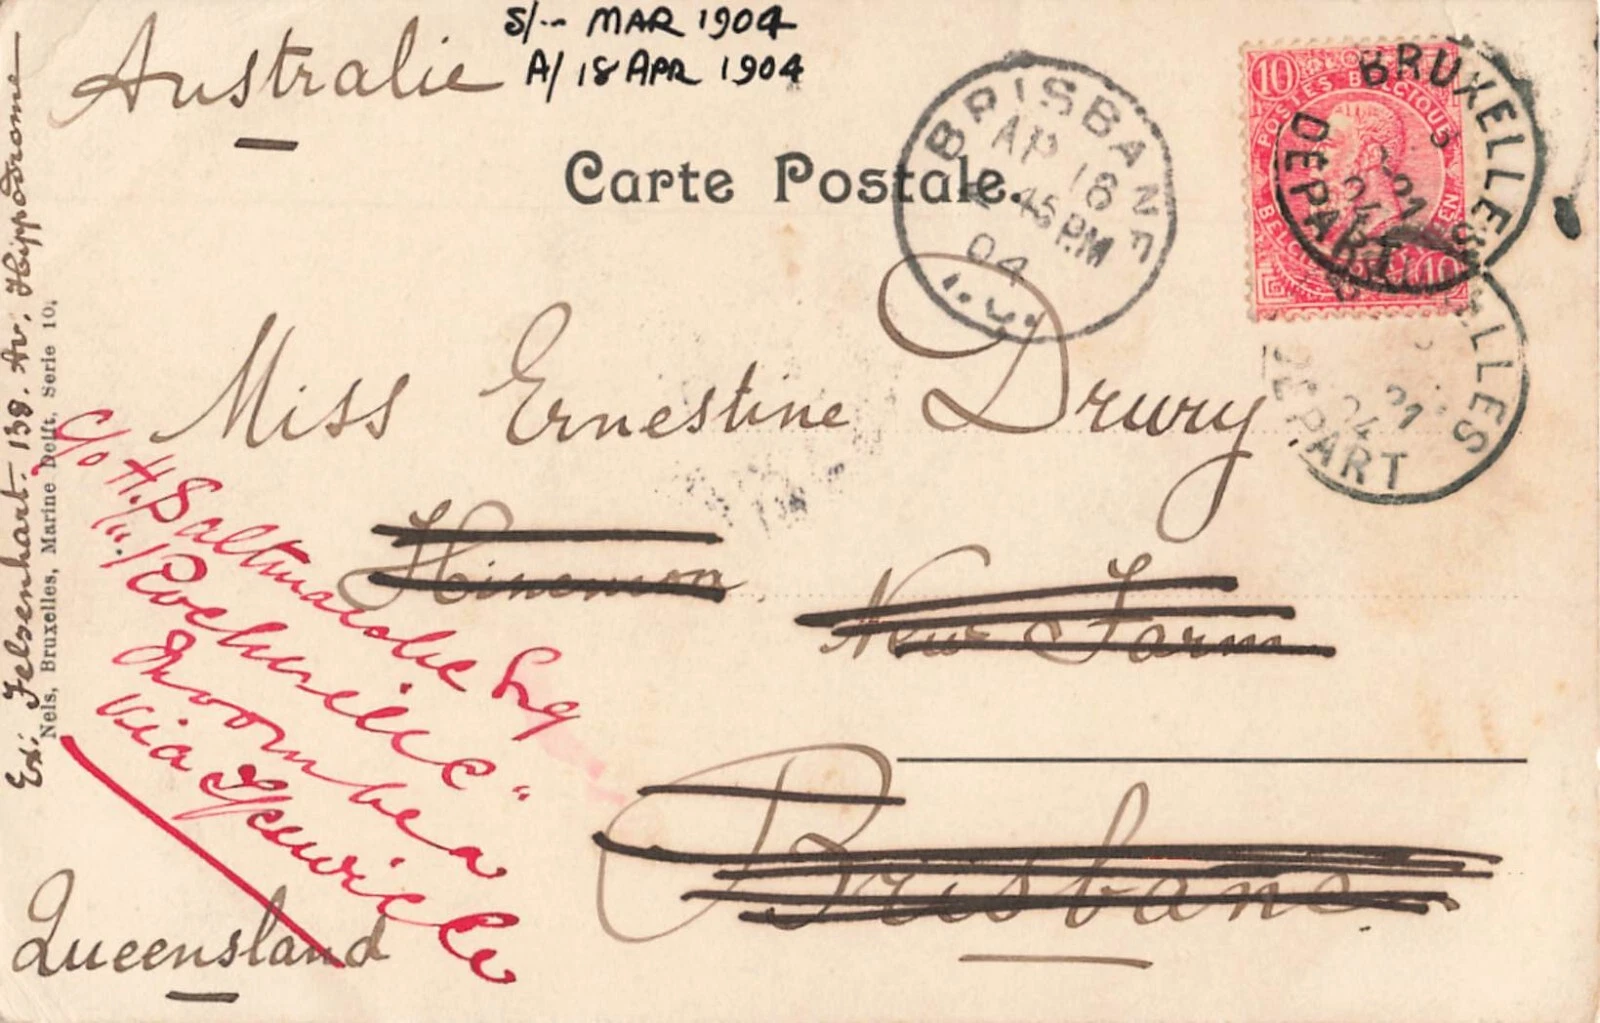 S/-- MAR 1904
A/ 18 APR 1904
Australie
Carte Postale.
BRISBANE
AP 18
45 PM
04
10 10
POSTES BELGIQUE
BRUXELLES
DEPART
21
04
BRUXELLES
DEPART
21
04
Miss Ernestine Drury
New Farm
Brisbane.
Queensland
C/o H. Saltmarshe Esq
"Rochville"
Via Ipswich
Ex: Felsenhart. 138. Av, Hippodrome
Nels, Bruxelles, Marine Delft, Serie 10,